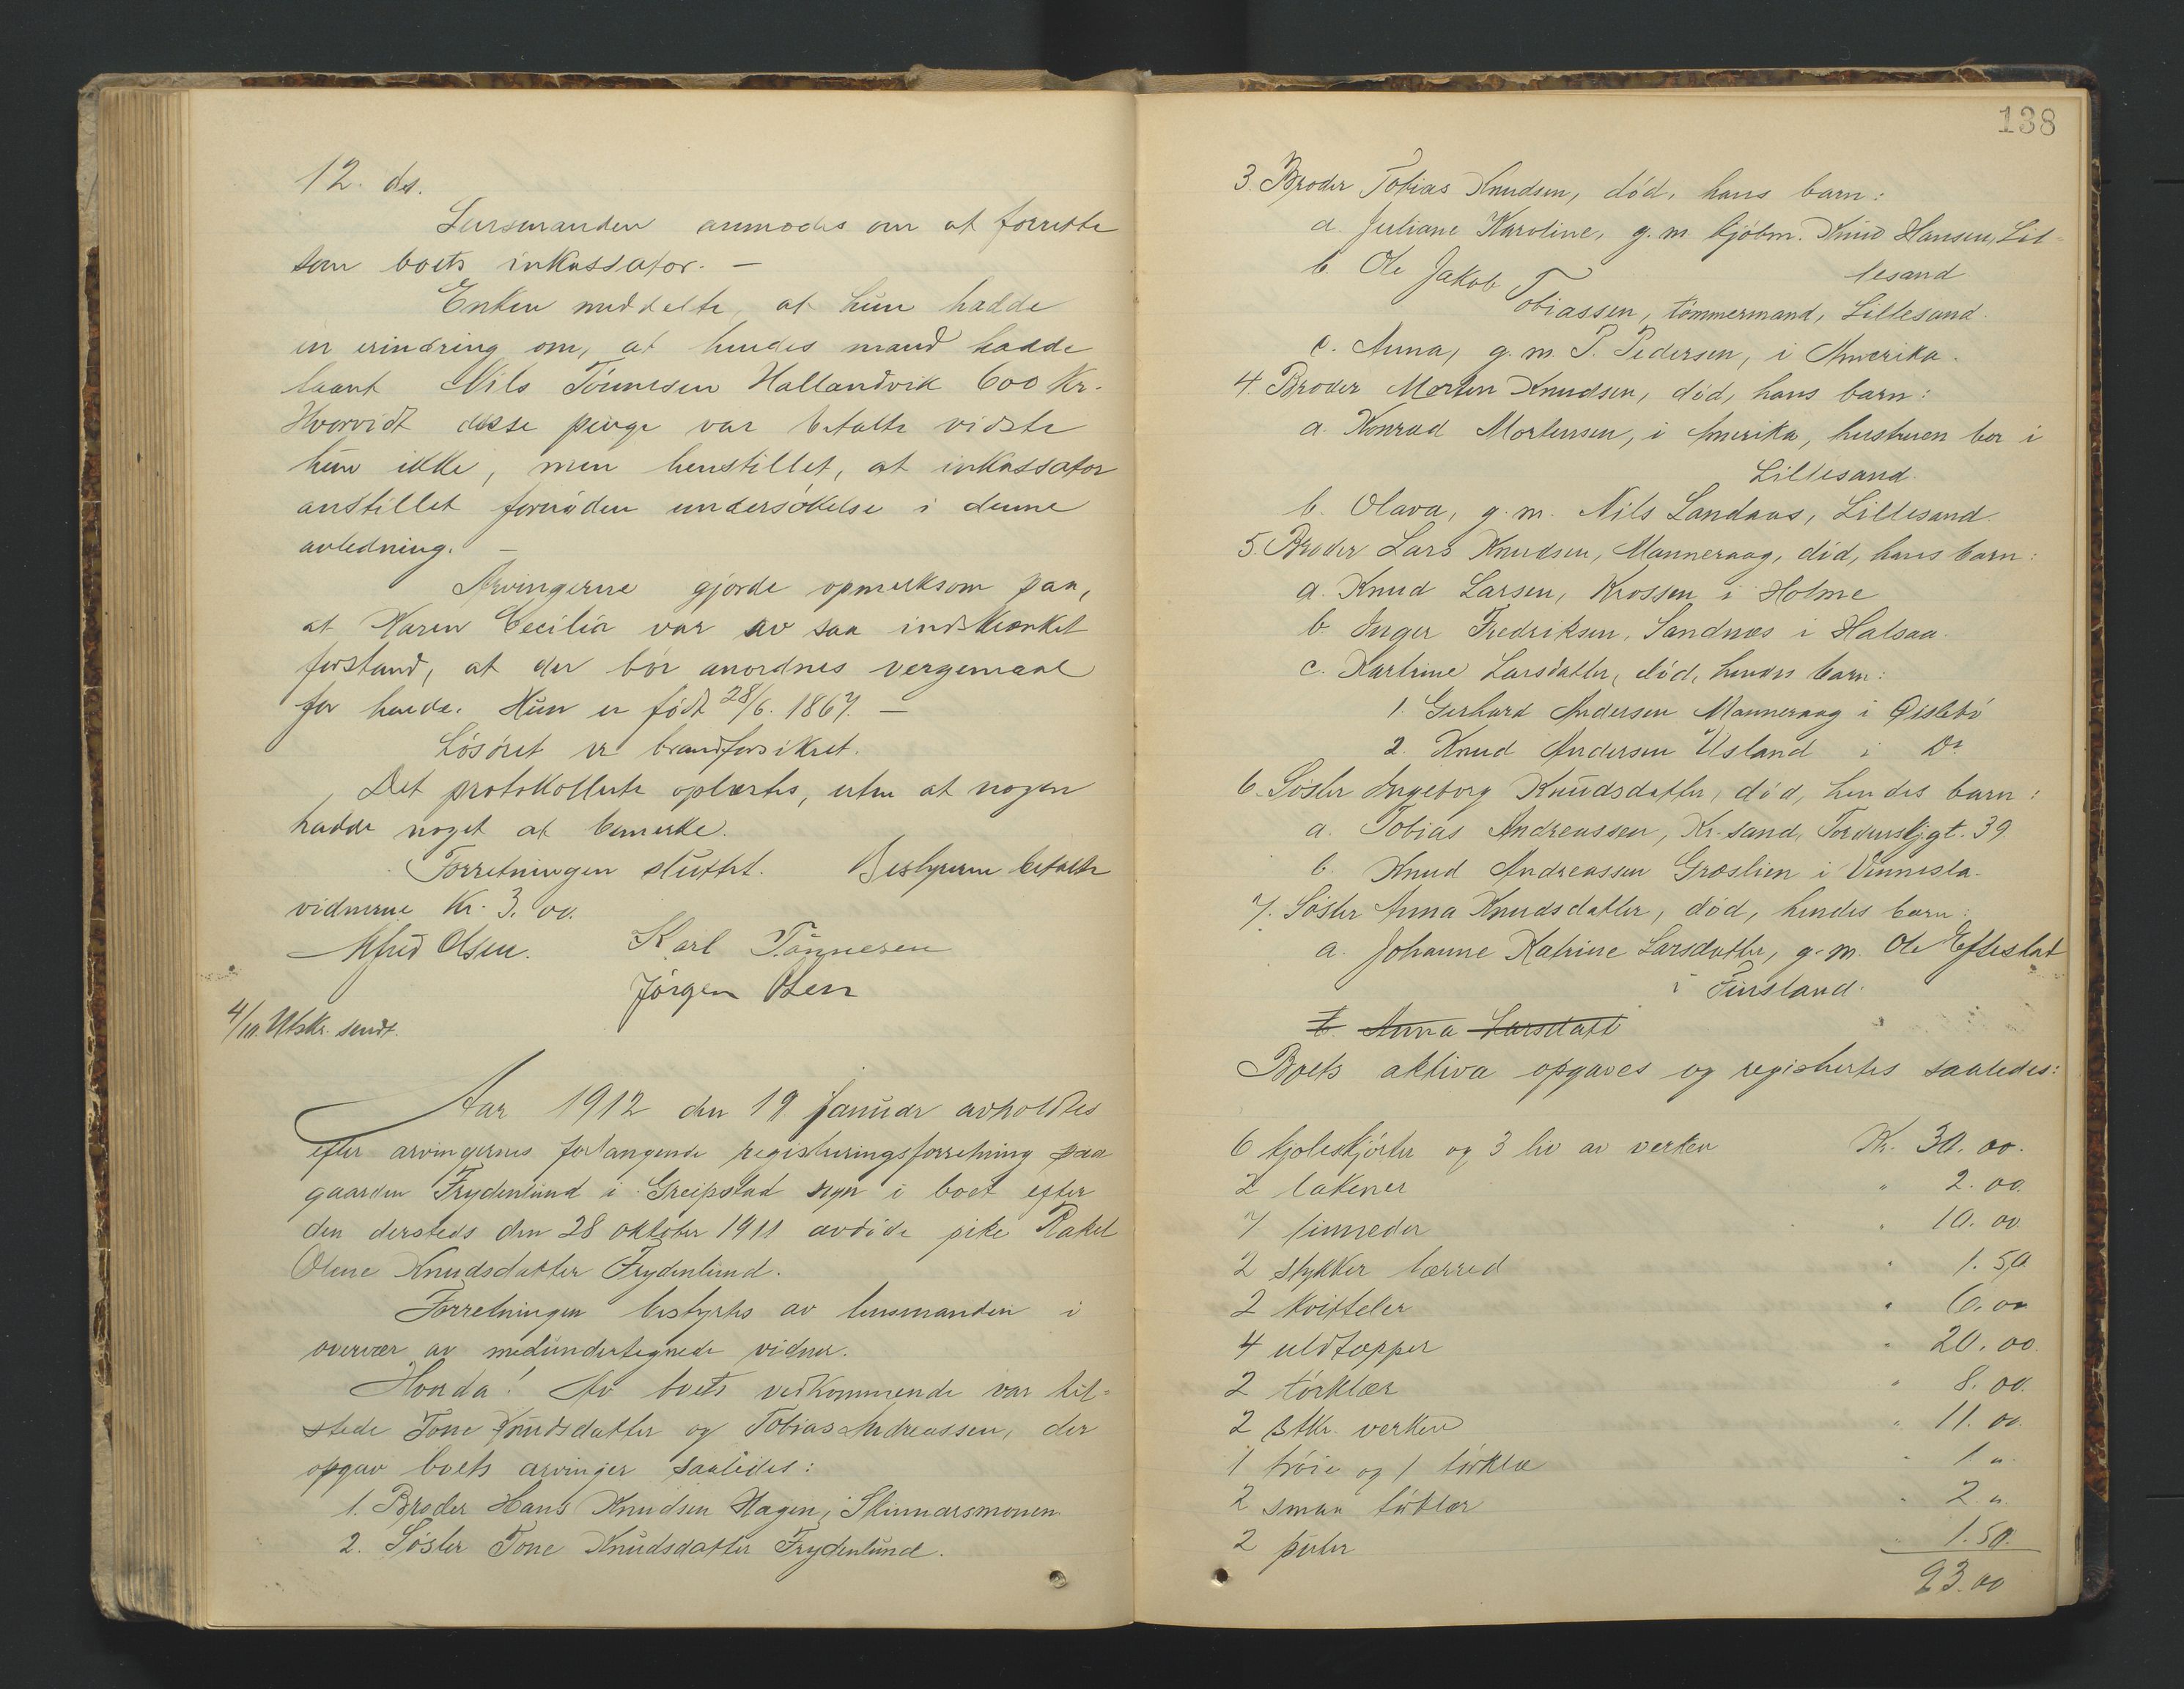 12. ds.
Lensmanden anmodes om at forrette
som boets inkassator. –
Enken meddelte, at hun hadde
en erindring om, at hendes mand hadde
laant Nils Tönnesen Hallandvik 600 Kr.
Hvorvidt disse penge var betalte vidste
hun ikke, men henstillet, at inkassator
anstillet fornöden undersökelse i denne
anledning. –
Arvingerne gjorde opmerksom paa,
at Karen Cecilia var av saa indskrænket
forstand, at der bör anordnes vergemaal
for hende. Hun er födt 28/6. 1867. –
Lösöret er brandforsikret.
Det protokollerte oplæstes, uten at nogen
hadde noget at bemerke.
Forretningen sluttet. Bestyreren betalte
vidnerne Kr. 3.00.
Alfred Olsen. Karl Tönnesen
Jörgen Olsen
4/10. Utskr. sendt.
Aar 1912 den 19 Januar avholdtes
efter arvingernes forlangende registreringsforretning paa
gaarden Frydenlund i Greipstad sogn i boet efter
den dersteds den 28 oktober 1911 avdöde pike Rakel
Olene Knudsdatter Frydenlund.
Forretningen bestyrtes av lensmanden i
overvær av medundertegnede vidner.
Hvorda! Av boets vedkommende var til-
stede Tone Knudsdatter og Tobias Andreassen, der
opgav boets arvinger saaledes:
1. Broder Hans Knudsen Hagen, i Skinnarsmonen
2. Söster Tone Knudsdatter Frydenlund.
138
3. Broder Tobias Knudsen, död, hans barn:
a. Juliane Karoline, g. m. kjöbm. Knud Hansen, Lil-
lesand
b. Ole Jakob Tobiassen, tömmermand, Lillesand.
c. Anna, g. m. P. Pedersen, i Amerika.
4. Broder Morten Knudsen, död, hans barn:
a. Konrad Mortensen, i Amerika, hustruen bor i
Lillesand.
b. Olava, g. m. Nils Landaas, Lillesand.
5. Broder Lars Knudsen, Manneraag, död, hans barn:
a. Knud Larsen, Krossen i Holme
b. Inger Fredriksen, Sandnæs i Halsaa.
c. Kartrine Larsdatter, död, hendes barn:
1. Gerhard Andersen Manneraag i Øislebö
2. Knud Andersen Usland i Do
6. Söster Ingeborg Knudsdatter, död, hendes barn:
a. Tobias Andreassen, Kr.sand, Tordenskjgt. 39.
b. Knud Andreassen Groslien i Vennesla.
7. Söster Anna Knudsdatter, död, hendes barn:
a. Johanne Katrine Larsdatter, g. m. Ole Eftestøl
i Finsland.
b. Anna Larsdatt
Boets aktiva opgaves og registertes saaledes:
6 kjoleskjörter og 3 liv av verken Kr. 30.00.
2 lakener " 2.00.
7 " 10.00.
2 stykker lærred " 1.50
2 kvitteler " 6.00
4 uldtæpper " 20.00.
2 törklær " 8.00.
2 stkr. verken " 11.00
1 tröie og 1 törklæ " 1 "
2 smaa törklær " 2 "
2 puter " 1.50.
93.00